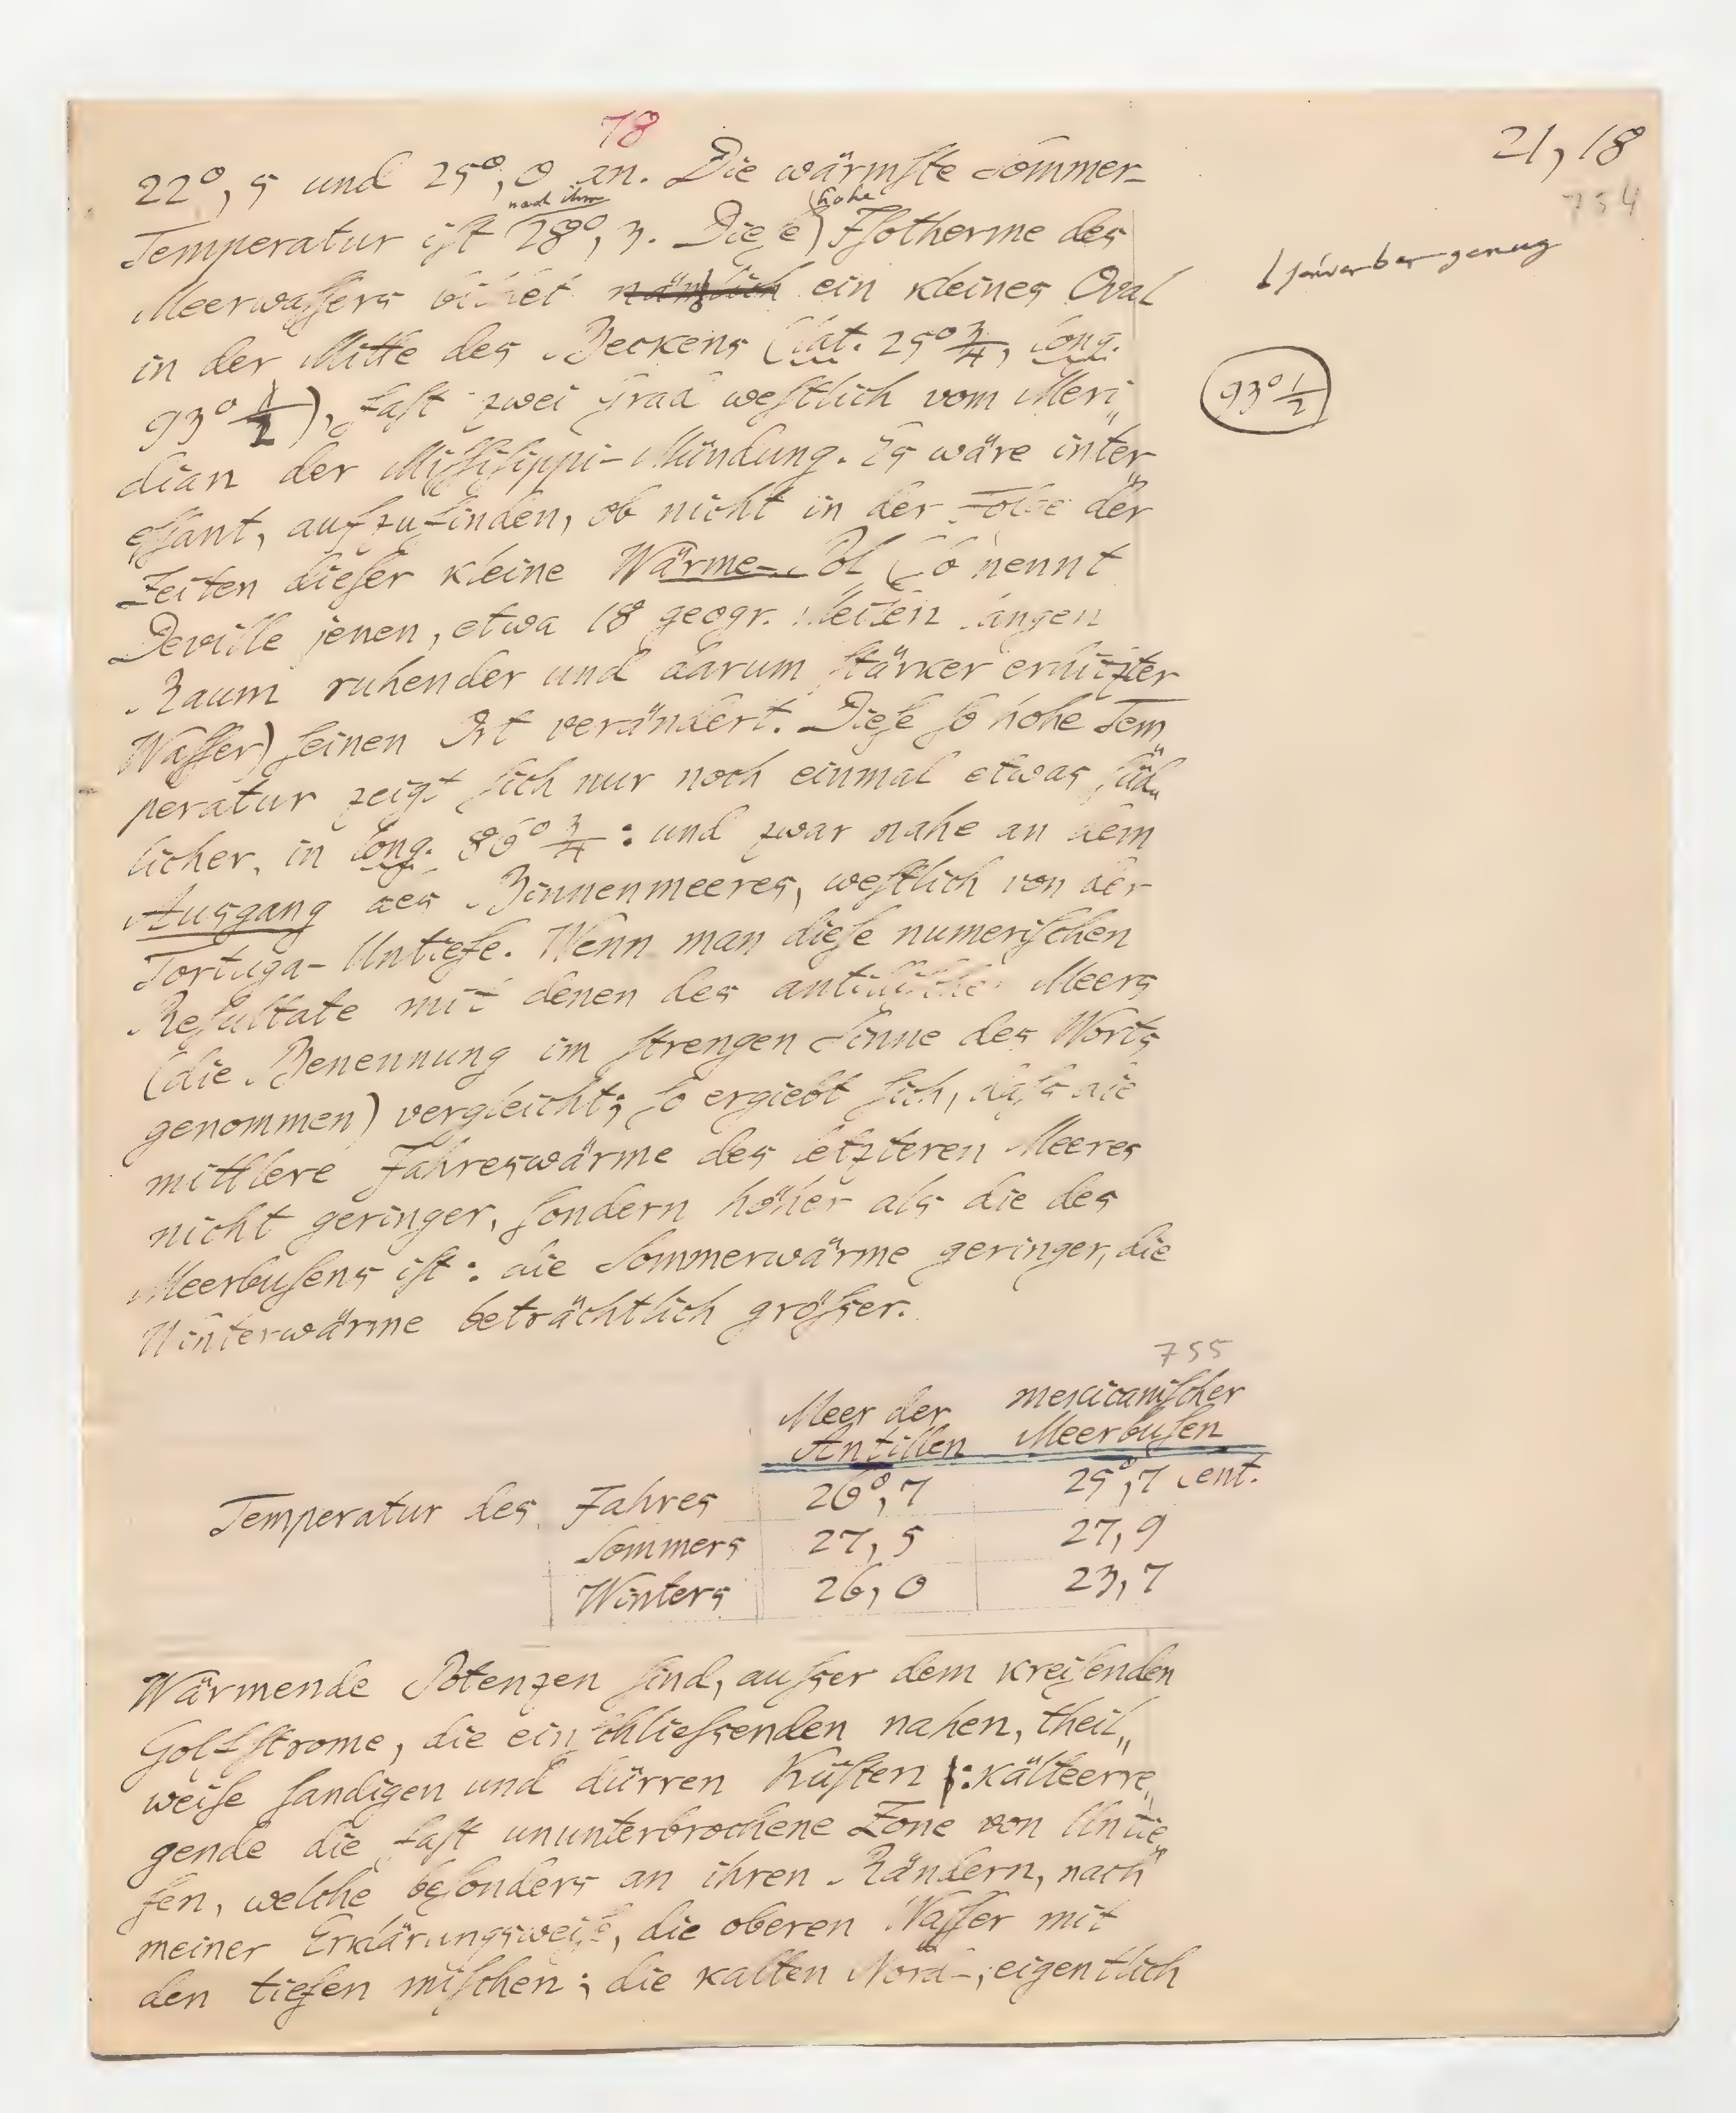 78
21, 18
754
22°, 5 und 25°, 0 an. Die wärmſte Sommer-
nach ihm hohe
Temperatur iſt 28°, 3. Dieſe Iſotherme des
Meerwaſſers bildet nämlich ein kleines Oval
in der Mitte des Beckens (lat. 25° 3/4, long.
93° 1/2), faſt zwei Grad weſtlich vom Meri„
93° 1/2
dian der Miſſiſippi-Mündung. Es wäre inter„
eſſant, aufzufinden, ob nicht in der Folge der
Zeiten dieſer kleine Wärme-Pol (ſo nennt
Deville jenen, etwa 18 geogr. Meilen langen
Raum ruhender und darum ſtärker erhitzter
Waſſer) ſeinen Ort verändert. Dieſe ſo hohe Tem„
peratur zeigt ſich nur noch einmal etwas ſüd„
licher, in long. 86° 3/4: und zwar nahe an dem
Ausgang des Binnenmeeres, weſtlich von der
Tortuga-Untiefe. Wenn man dieſe numeriſchen
Reſultate mit denen des antilliſchen Meers
(die Benennung im ſtrengen Sinne des Worts
genommen) vergleicht; ſo ergiebt ſich, daſs die
mittlere Jahreswärme des letzteren Meeres
nicht geringer, ſondern höher als die des
Meerbuſens iſt: die Sommerwärme geringer, die
Winterwärme beträchtlich gröſser.
755
Meer der Antillen mexicaniſcher Meerbuſen
Temperatur des Jahres 26°, 7 25°, 7 cent.
Sommers 27, 5 27, 9
Winters 26, 0 23, 7
Wärmende Potenzen ſind, auſser dem kreiſenden
Golfſtrome, die einſchlieſsenden nahen, theil„
weiſe ſandigen und dürren Küſten: kälteerre„
gende die faſt ununterbrochene Zone von Untie„
fen, welche beſonders an ihren Rändern, nach
meiner Erklärungsweiſe, die oberen Waſſer mit
den tiefen miſchen; die kalten Nord-, eigentlich